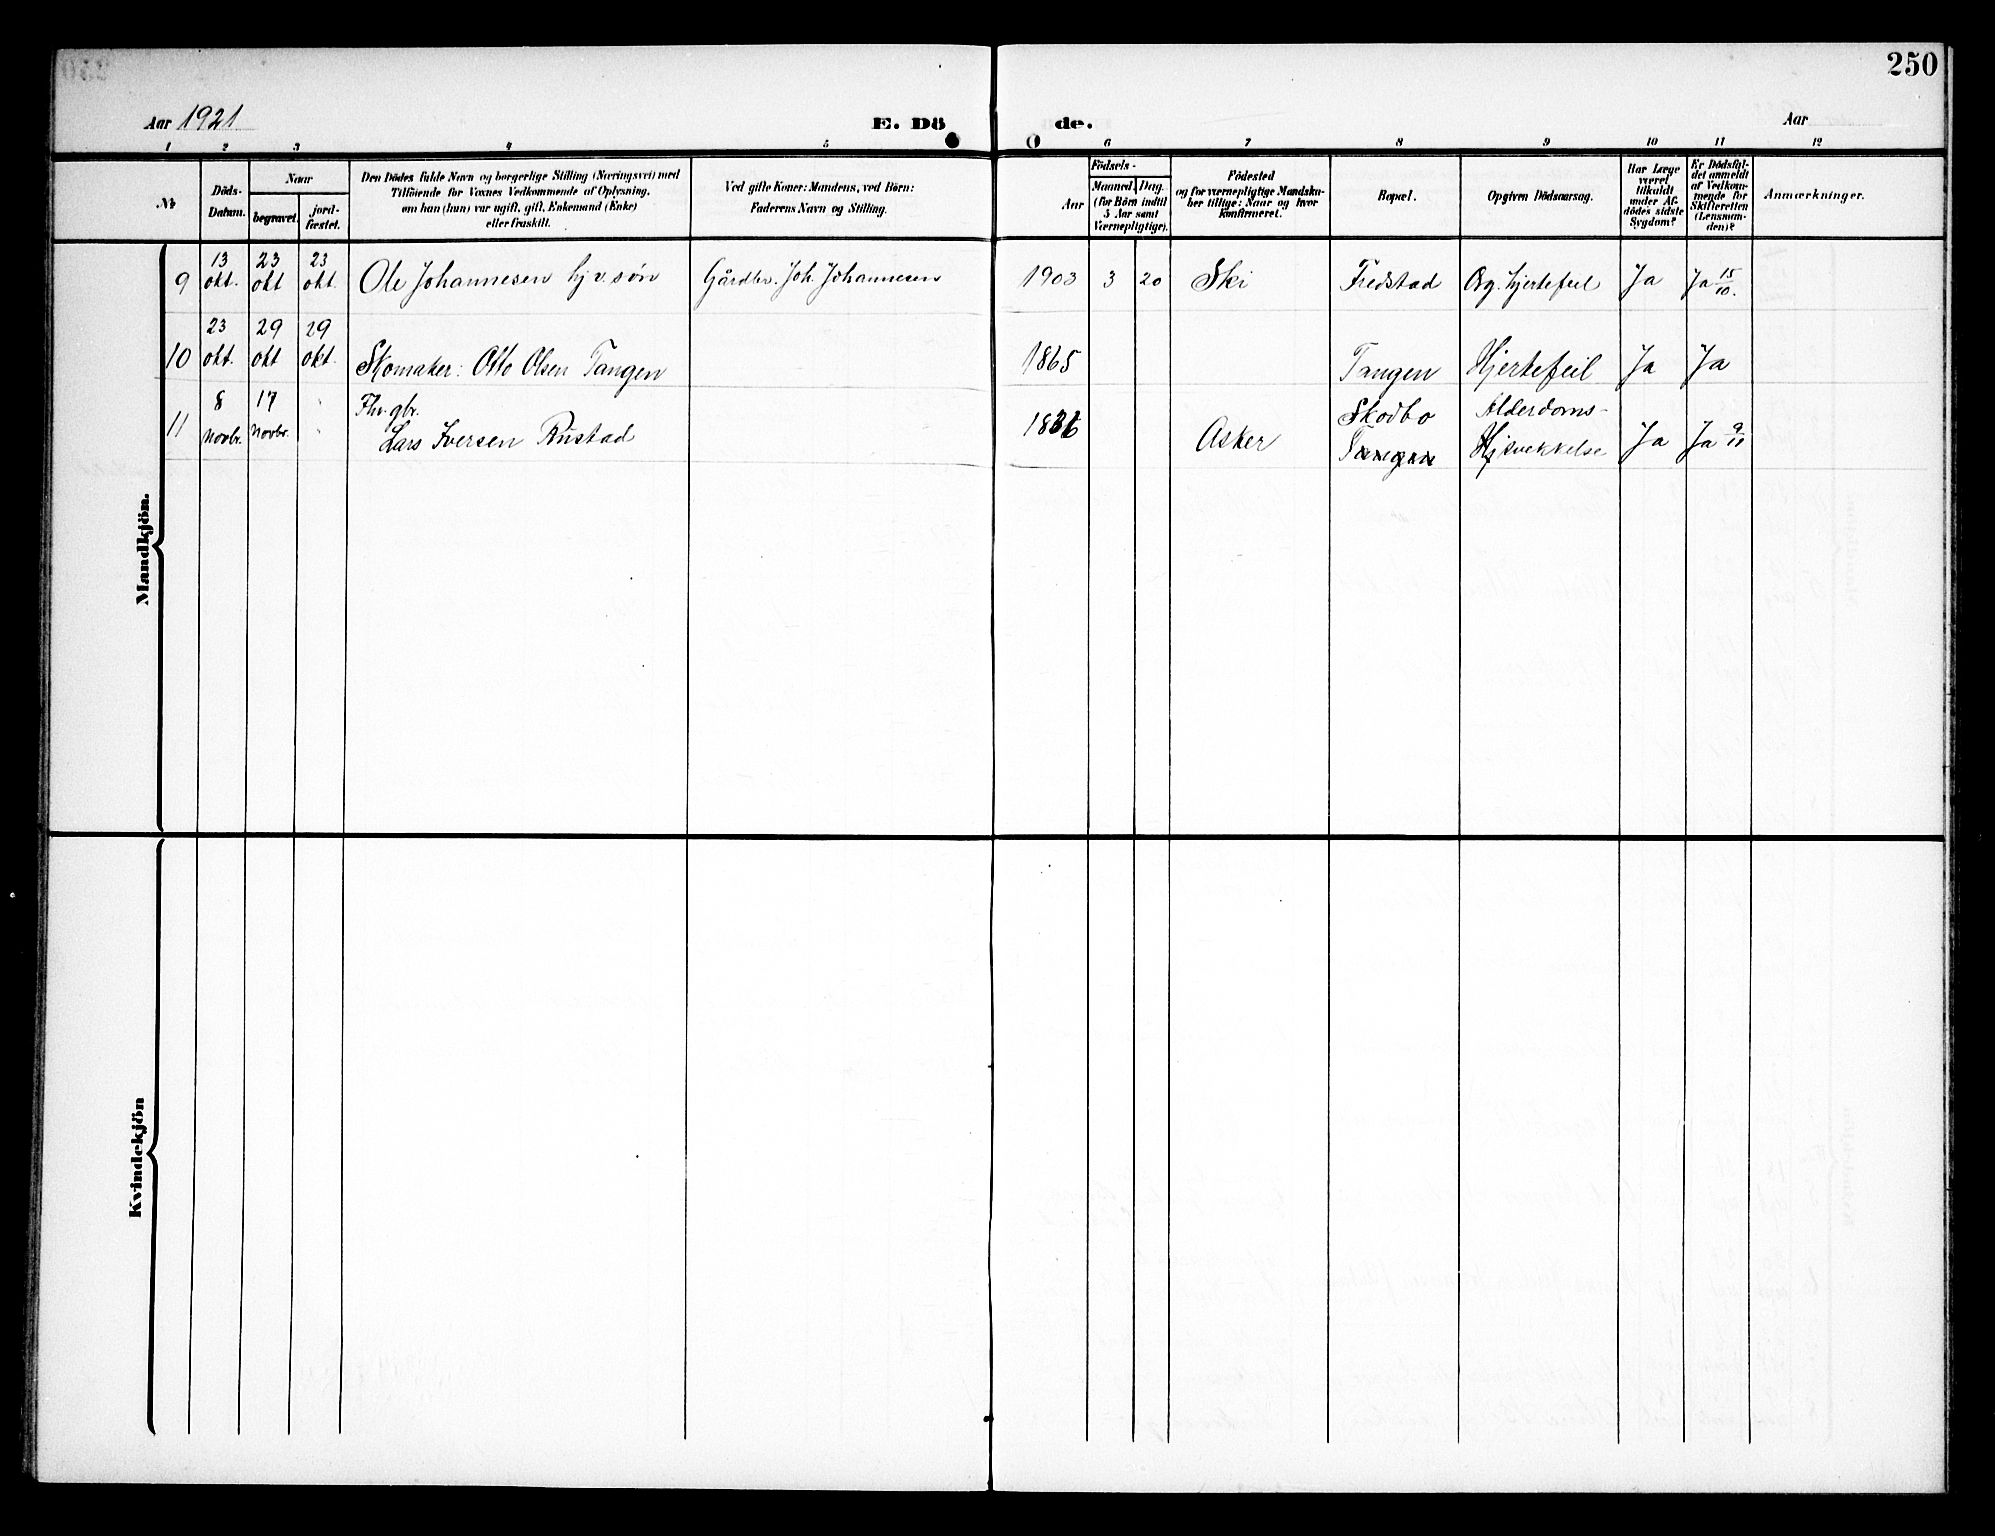 250
Aar 1921
E. Dö
de.
Aar
1 2 3 4 5 6 7 8 9 10 11 12
№
Döds-
Datum.
Naar
begravet.
jord-
fæstet.
Den Dödes fulde Navn og borgerlige Stilling (Næringsvei) med
Tilföiende for Voxnes Vedkommende af Oplysning,
om han (hun) var ugift, gift, Enkemand (Enke)
eller fraskilt.
Ved gifte Koner: Mandens, ved Börn:
Faderens Navn og Stilling.
Födsels-
Aar
Maaned. Dag.
(for Börn indtil
5 Aar samt
Værnepligtige).
Födested
og for værnepligtige Mandska-
ber tillige: Naar og hvor
konfirmeret.
Bopæl.
Opgiven Dödsaarsag.
Har Læge
været
tilkaldt
under Af-
dödes sidste
Sygdom?
Er Dödsfal-
det anmeldt
af Vedkom-
mende for
Skifteretten
(Lensman-
den)?
Anmærkninger.
Mandkjön.
9 13 okt. 23 okt 23 okt. Ole Johannesen hj. v. søn Gårdbr. Joh. Johannesen 1903 3 20 Ski Fredstad Org. hjertefeil Ja Ja 15/10.
10 23 okt. 29 okt 29 okt. Skomaker: Otto Olsen Tangen 1865 Tangen Hjertefeil Ja Ja
11 8 novbr. 17 novbr. Fhv. gbr. Lars Iversen Rustad Asker Skodbo Tangen Alderdoms- svekkelse Ja Ja 9/11
Kvindekjön